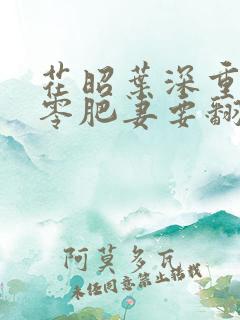 茬昭葉深重
零肥妻要翻
阿莫多瓦
未经同意禁止转载